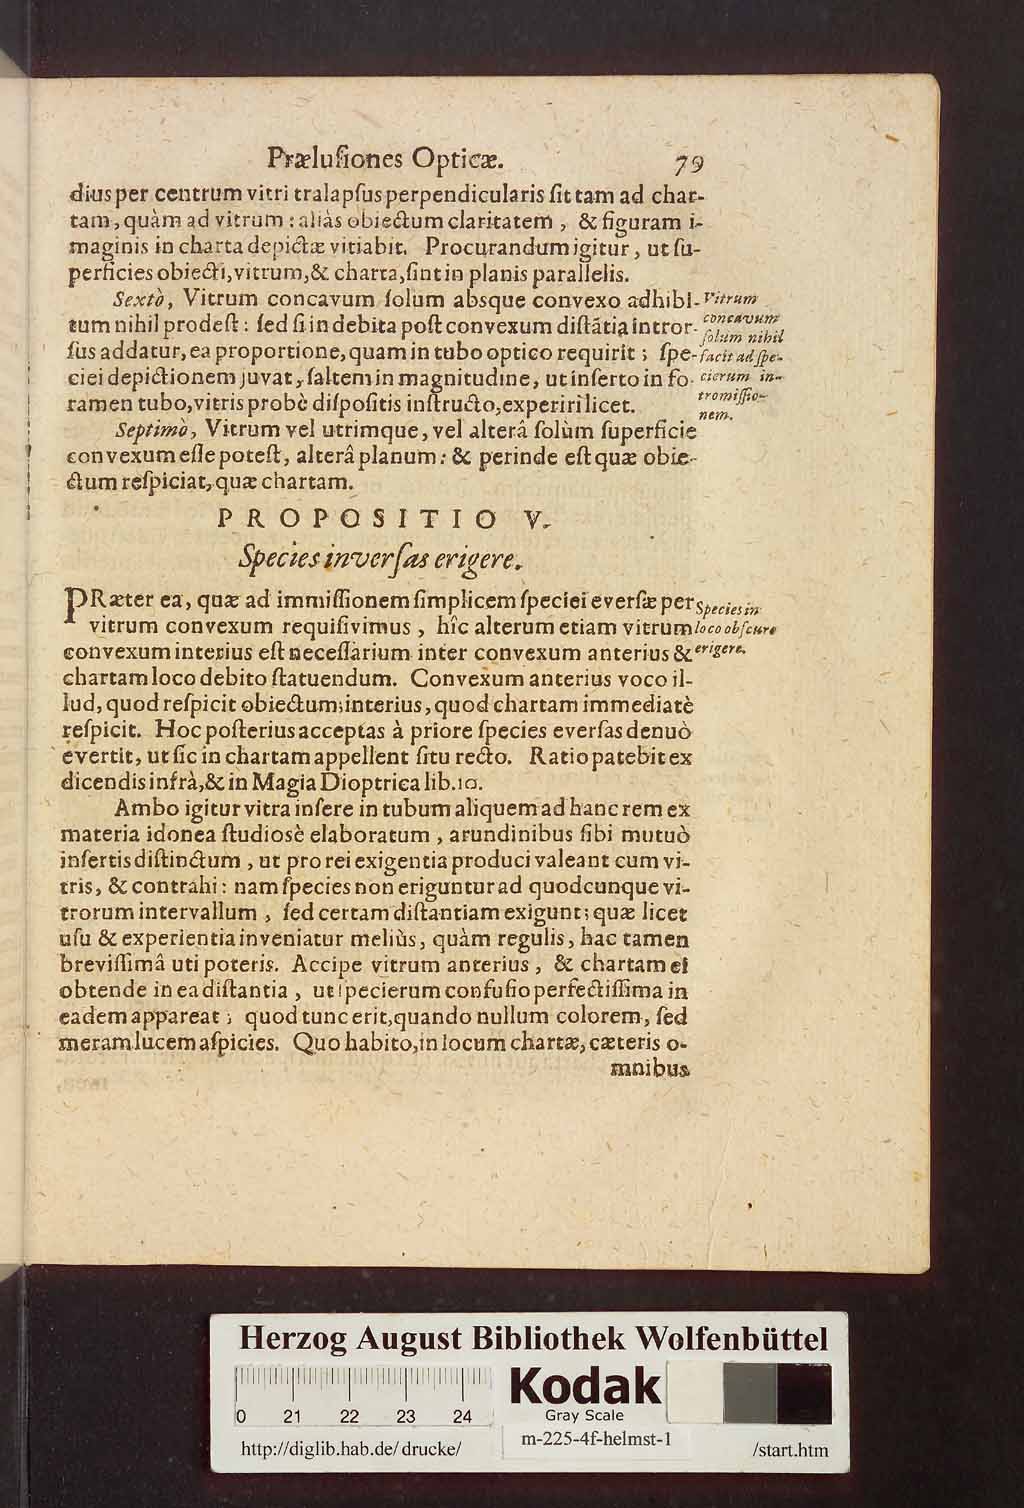 Prælusiones Opticæ. 79
dius per centrum vitri tralapsus perpendicularis sit tam ad char-
tam, quàm ad vitrum : aliàs obiectum claritatem , & figuram i-
maginis in charta depictæ vitiabit. Procurandum igitur , ut su-
perficies obiecti, vitrum, & charta, sint in planis parallelis.
Sextò, Vitrum concavum solum absque convexo adhibi-
tum nihil prodest : sed si in debita post convexum distãtia intror-
sus addatur, ea proportione, quam in tubo optico requirit ; spe-
ciei depictionem juvat, saltem in magnitudine, ut inserto in fo-
ramen tubo, vitris probè dispositis instructo, experiri licet.
Vitrum
concavum
solum nihil
facit ad spe-
cierum in-
tromissio-
nem.
Septimò, Vitrum vel utrimque, vel alterâ solùm superficie
convexum esse potest, alterâ planum : & perinde est quæ obie-
ctum respiciat, quæ chartam.
PROPOSITIO V.
Species inversas erigere.
PRæter ea, quæ ad immissionem simplicem speciei eversæ per
vitrum convexum requisivimus , hîc alterum etiam vitrum
convexum interius est necessarium inter convexum anterius &
chartam loco debito statuendum. Convexum anterius voco il-
lud, quod respicit obiectum; interius, quod chartam immediatè
respicit. Hoc posterius acceptas à priore species eversas denuò
evertit, ut sic in chartam appellent situ recto. Ratio patebit ex
dicendis infrà, & in Magia Dioptrica lib. 10.
Species in
loco obscuro
erigere.
Ambo igitur vitra insere in tubum aliquem ad hanc rem ex
materia idonea studiosè elaboratum , arundinibus sibi mutuò
insertis distinctum , ut pro rei exigentia produci valeant cum vi-
tris, & contrahi : nam species non eriguntur ad quodcunque vi-
trorum intervallum , sed certam distantiam exigunt; quæ licet
usu & experientia inveniatur meliùs, quàm regulis, hac tamen
brevissimâ uti poteris. Accipe vitrum anterius , & chartam ei
obtende in ea distantia , ut specierum confusio perfectissima in
eadem appareat ; quod tunc erit, quando nullum colorem, sed
meram lucem aspicies. Quo habito, in locum chartæ, cæteris o-
mnibus
Herzog August Bibliothek Wolfenbüttel
0 21 22 23 24
Kodak
Gray Scale
http://diglib.hab.de/drucke/ m-225-4f-helmst-1 /start.htm